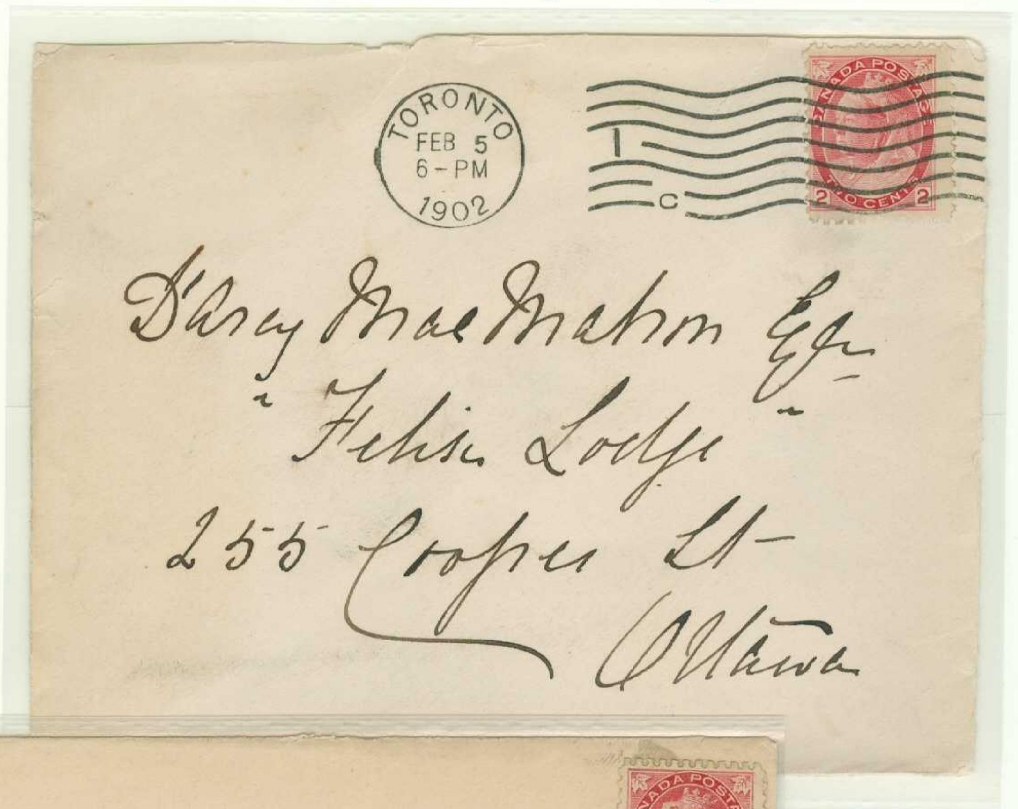 TORONTO
FEB 5
6-PM
1902
I
C
CANADA POSTAGE
TWO CENTS
2 2
D'Arcy MacMahon Esqr
" Felise Lodge "
255 Cooper St
Ottawa
CANADA POSTAGE